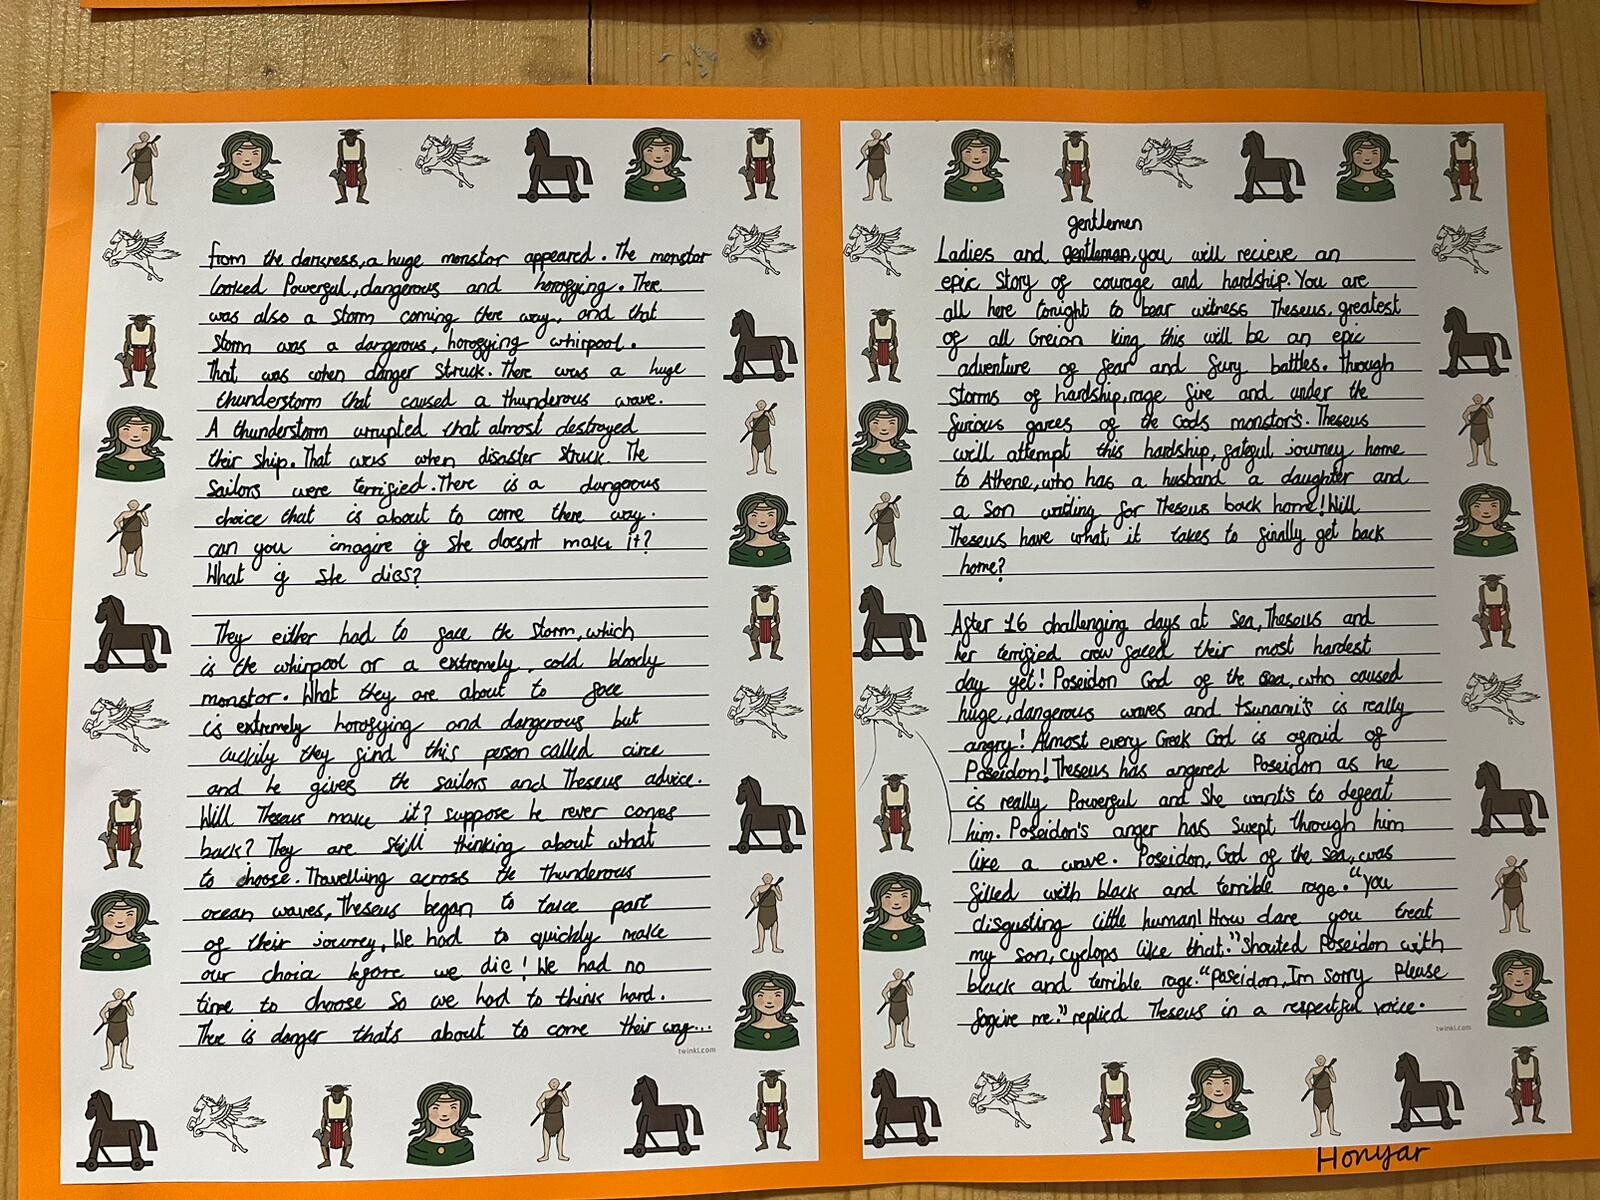 from the darkress, a huge monstor appeared. The monstor
looked Powerful, dangerous and horofying. There
was also a storm coming there way, and that
storm was a dangerous, horofying whirpool.
That was when danger struck. There was a huge
thunderstorm that caused a thunderous wave.
A thunderstorm urrupted that almost destroyed
their ship. That was when disaster struck. The
Sailors were terrified. There is a dangerous
choice that is about to come there way.
can you imagine if she doesnt make it?
What if she dies?
They either had to face the storm, which
is the whirpool or a extremely, cold bloody
monstor. What they are about to face
is extremely horofying and dangerous but
luckily they find this person called circe
and he gives the sailors and Theseus advice.
Will Theseus make it? suppose he never comes
back? They are still thinking about what
to choose. Travelling across the thunderous
ocean waves, Theseus began to take part
of their journey. We had to quickly make
our choice before we die! We had no
time to choose so we had to think hard.
There is danger thats about to come their way...
twinkl.com
gentlemen
Ladies and gentleman, you will recieve an
epic Story of courage and hardship. You are
all here tonight to bear witness Theseus, greatest
of all Greian king this will be an epic
adventure of fear and fury battles. Through
Storms of hardship, rage fire and under the
furious gazes of the Gods monstor's. Theseus
will attempt this hardship, fateful journey home
to Athene, who has a husband a daughter and
a son waiting for Theseus back home! Will
Theseus have what it takes to finally get back
home?
After 16 challenging days at sea, Theseus and
her terrified crew faced their most hardest
day yet! Poseidon God of the sea, who caused
huge, dangerous waves and tsunami's is really
angry! Almost every Greek God is afraid of
Poseidon! Theseus has angered Poseidon as he
is really Powerful and She want's to defeat
him. Poseidon's anger has swept through him
like a wave. Poseidon, God of the sea, was
filled with black and terrible rage. "you
disgusting little human! How dare you treat
my son, cyclops like that." Shouted Poseidon with
black and terrible rage. "Poseidon, Im sorry Please
forgive me." replied Theseus in a respectful voice.
twinkl.com
Honyar